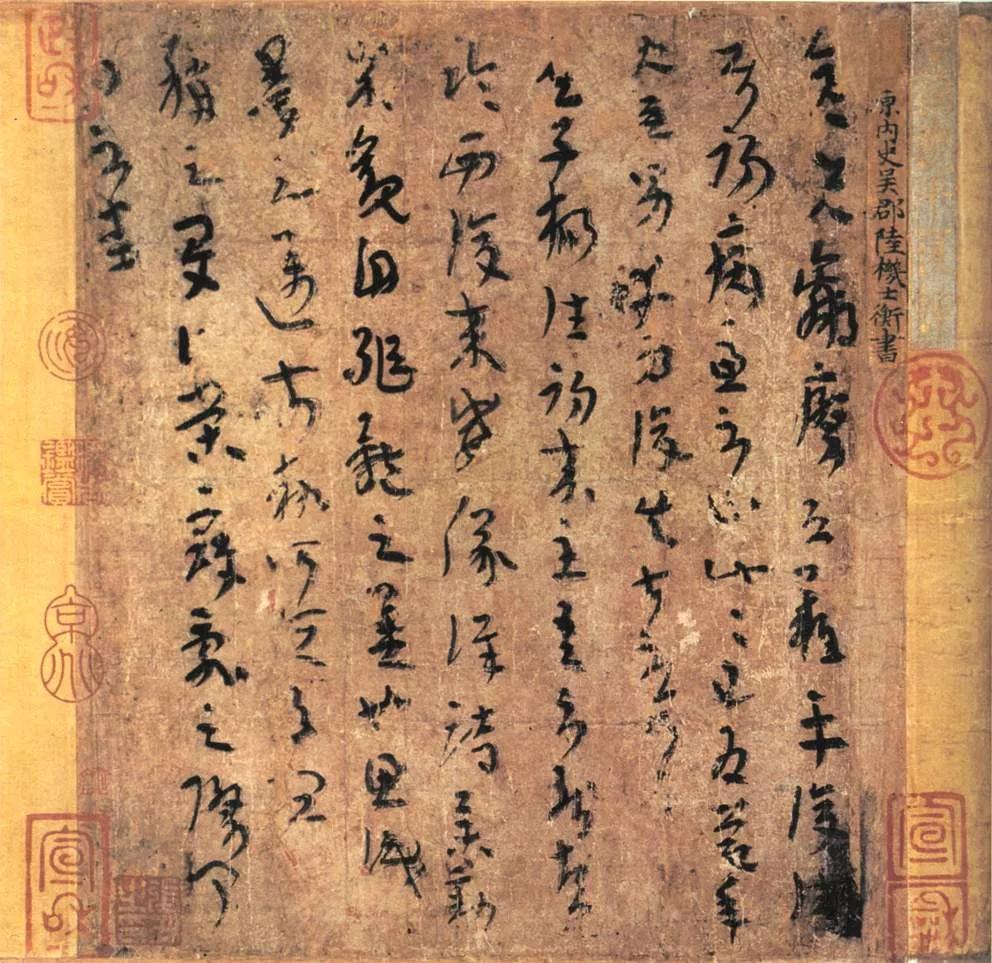 原内史吳郡陸機士衡書
彥先羸瘵恐難平復往屬
初病慮不止此此已為慶承
使唯男幸為復失前憂耳
吳子楊往初來主吾不能盡
臨西復來威儀詳跱舉動
成觀自軀體之美也思識
量之邁前執所恒有宜
稱之夏伯榮寇亂之際聞
問不悉
宣和